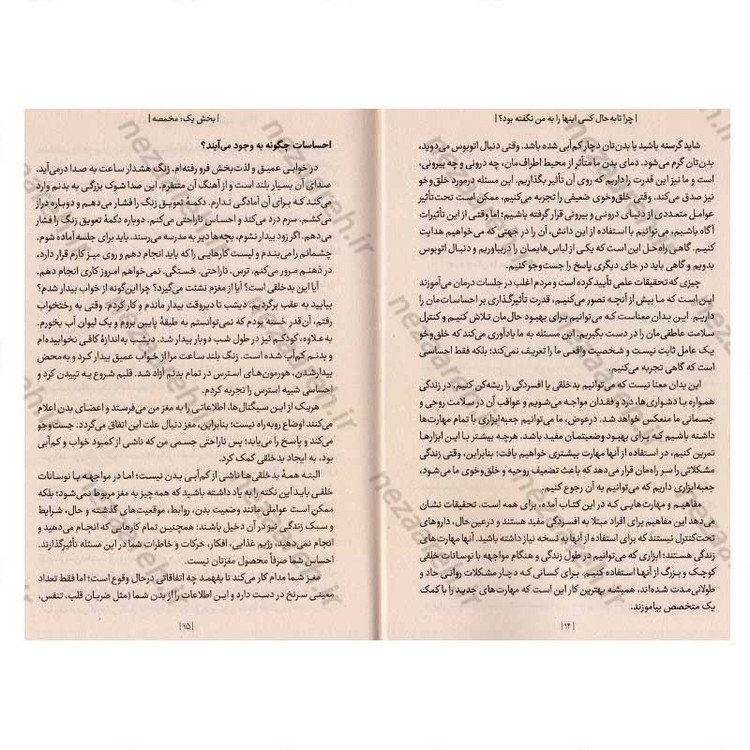 | چرا تا به حال کسی اینها را به من نگفته بود؟ |
شاید گرسنه باشید یا بدن‌تان دچار کم‌آبی شده باشد. وقتی دنبال اتوبوس می‌دوید،
بدن‌تان گرم می‌شود. دمای بدن ما متأثر از محیط اطراف‌مان، چه درونی و چه بیرونی،
است و ما نیز این قدرت را داریم که روی آن تأثیر بگذاریم. این مسئله درمورد خلق‌وخو
نیز صدق می‌کند. وقتی خلق‌وخوی ضعیفی را تجربه می‌کنیم، ممکن است تحت‌تأثیر
عوامل متعددی از دنیای درونی و بیرونی قرار گرفته باشیم؛ اما وقتی از این تأثیرات
آگاه باشیم، می‌توانیم با استفاده از این دانش، آن را در جهتی که می‌خواهیم هدایت
کنیم. گاهی راه‌حل این است که یکی از لباس‌هایمان را دربیاوریم و دنبال اتوبوس
بدویم و گاهی باید در جای دیگری پاسخ را جست‌وجو کنیم.
چیزی که تحقیقات علمی تأیید کرده است و مردم اغلب در جلسات درمان می‌آموزند
این است که ما بیش از آنچه تصور می‌کنیم، قدرت تأثیرگذاری بر احساسات‌مان را
داریم. این بدان معناست که می‌توانیم برای بهبود حال‌مان تلاش کنیم و کنترل
سلامت عاطفی‌مان را در دست بگیریم. این مسئله به ما یادآوری می‌کند که خلق‌وخو
یک عامل ثابت نیست و شخصیت واقعی ما را تعریف نمی‌کند؛ بلکه فقط احساسی
است که گاهی تجربه می‌کنیم.
این بدان معنا نیست که می‌توانیم بدخلقی یا افسردگی را ریشه‌کن کنیم. در زندگی
همواره با دشواری‌ها، درد و فقدان مواجه می‌شویم و عواقب آن در سلامت روحی و
جسمانی ما منعکس خواهد شد. درعوض، ما می‌توانیم جعبه‌ابزاری با تمام مهارت‌ها
داشته باشیم که برای بهبود وضعیتمان مفید باشد. هرچه بیشتر با این ابزارها
تمرین کنیم، در استفاده از آنها مهارت بیشتری خواهیم یافت؛ بنابراین، وقتی زندگی
مشکلاتی را سر راه‌مان قرار می‌دهد که باعث تضعیف روحیه و خلق‌وخوی ما می‌شود،
جعبه‌ابزاری داریم که می‌توانیم به آن رجوع کنیم.
مفاهیم و مهارت‌هایی که در این کتاب آمده، برای همه است. تحقیقات نشان
می‌دهد این مفاهیم برای افراد مبتلا به افسردگی مفید هستند و درعین‌حال، داروهای
تحت‌کنترلی نیستند که برای استفاده از آنها به نسخه نیاز داشته باشید. آنها مهارت‌های
زندگی هستند؛ ابزاری که می‌توانیم در طول زندگی و هنگام مواجهه با نوسانات خلقی
کوچک و بزرگ از آنها استفاده کنیم. برای کسانی که دچار مشکلات روانی حاد و
طولانی‌مدت شده‌اند، همیشه بهترین کار این است که مهارت‌های جدید را با کمک
یک متخصص بیاموزند.
| ۱۴ |
| بخش یک: مخمصه |
احساسات چگونه به وجود می‌آیند؟
در خوابی عمیق و لذت‌بخش فرو رفته‌ام. زنگ هشدار ساعت به صدا درمی‌آید.
صدای آن بسیار بلند است و از آهنگ آن متنفرم. این صدا شوک بزرگی به بدنم وارد
می‌کند که برای آن آمادگی ندارم. دکمهٔ تعویق زنگ را فشار می‌دهم و دوباره دراز
می‌کشم. سرم درد می‌کند و احساس ناراحتی می‌کنم. دوباره دکمهٔ تعویق زنگ را فشار
می‌دهم. اگر زود بیدار نشوم، بچه‌ها دیر به مدرسه می‌رسند. باید برای جلسه آماده شوم.
چشمانم را می‌بندم و لیست کارهایی را که باید انجام دهم و روی میز کارم قرار دارد،
در ذهنم مرور می‌کنم. ترس. ناراحتی. خستگی. نمی‌خواهم امروز کاری انجام دهم.
آیا این بدخلقی است؟ آیا از مغزم نشئت می‌گیرد؟ چرا این‌گونه از خواب بیدار شدم؟
بیایید به عقب برگردیم. دیشب تا دیروقت بیدار ماندم و کار کردم. وقتی به رختخواب
رفتم، آن‌قدر خسته بودم که نمی‌توانستم به طبقهٔ پایین بروم و یک لیوان آب بخورم.
به‌علاوه، کودکم نیز در طول شب دوبار بیدار شد. دیشب به‌اندازهٔ کافی نخوابیده‌ام
و بدنم کم‌آب شده است. زنگ بلند ساعت مرا از خواب عمیق بیدار کرد و به‌محض
بیدارشدن، هورمون‌های استرس در تمام بدنم آزاد شد. قلبم شروع به تپیدن کرد و
احساسی شبیه استرس را تجربه کردم.
هریک از این سیگنال‌ها، اطلاعاتی را به مغز من می‌فرستد و اعضای بدن اعلام
می‌کنند اوضاع روبه‌راه نیست؛ بنابراین، مغز دنبال علت این اتفاق می‌گردد. جست‌وجو
می‌کند و پاسخ را می‌یابد؛ پس ناراحتی جسمی من که ناشی از کمبود خواب و کم‌آبی
بود، به ایجاد بدخلقی کمک کرد.
البته همهٔ بدخلقی‌ها ناشی از کم‌آبی نیست؛ اما در مواجهه با نوسانات
خلقی باید این نکته را به یاد داشته باشید که همه‌چیز به مغز مربوط نمی‌شود؛ بلکه
ممکن است عواملی مانند وضعیت بدن، روابط، موقعیت‌های گذشته و حال، شرایط
و سبک زندگی نیز در آن دخیل باشند؛ همچنین تمام کارهایی که انجام می‌دهید و
انجام نمی‌دهید، رژیم غذایی، افکار، حرکات و خاطرات شما در این مسئله تأثیرگذارند.
احساس شما صرفاً محصول مغزتان نیست.
مغز شما مدام کار می‌کند تا بفهمد چه اتفاقاتی درحال وقوع است؛ اما فقط تعداد
معینی سرنخ در دست دارد و این اطلاعات را از بدن شما (مثل ضربان قلب، تنفس،
| ۱۵ |
nezaareh.ir